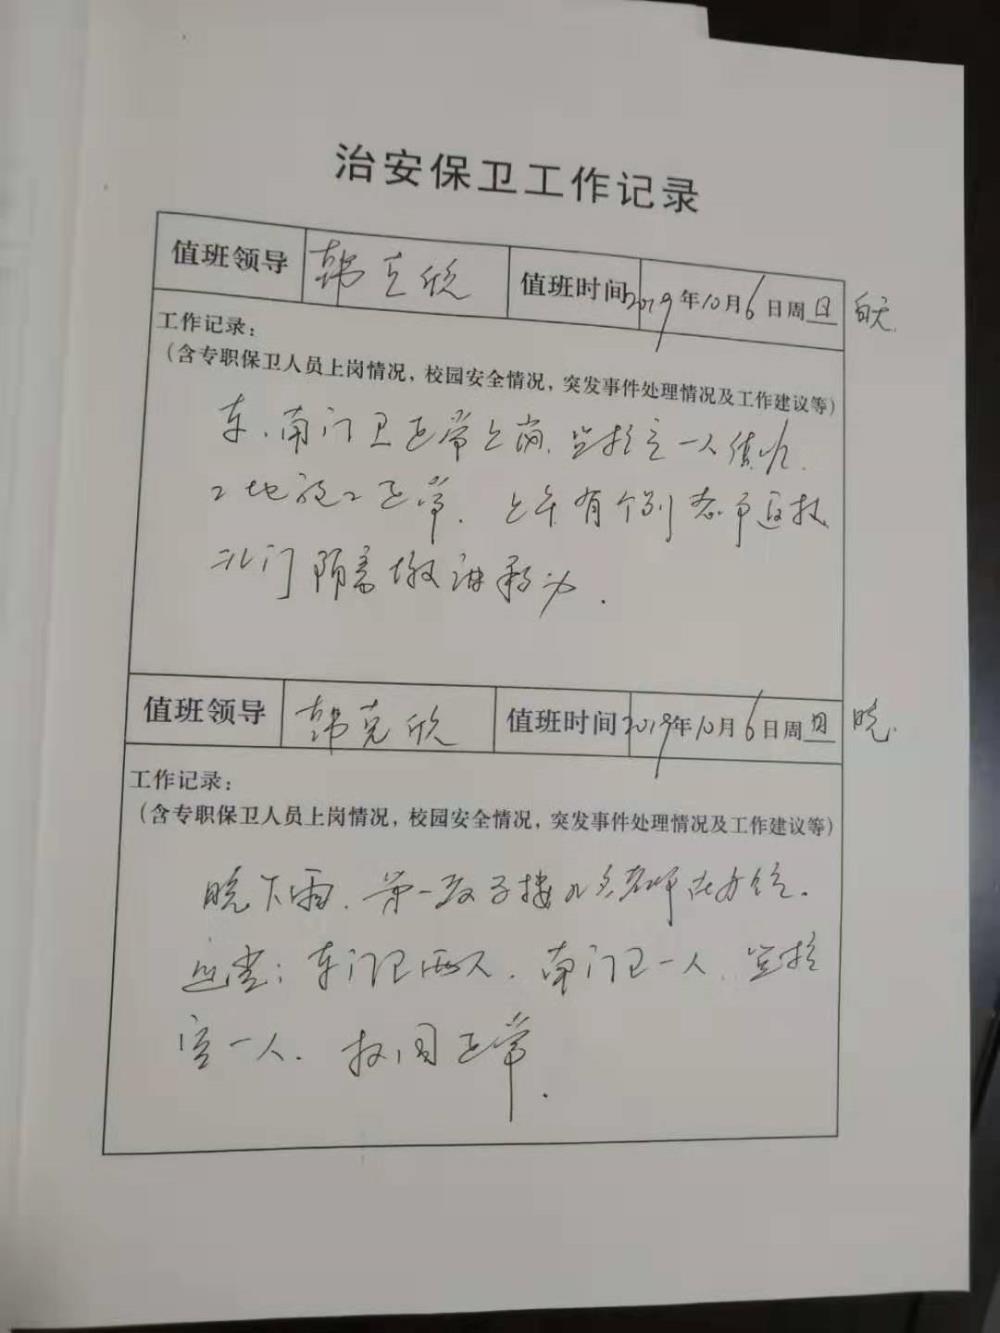 治安保卫工作记录
值班领导 韩克欣 值班时间 2019年10月6日周日 白天
工作记录：
（含专职保卫人员上岗情况，校园安全情况，突发事件处理情况及工作建议等）
东、南门卫正常上岗，监控室一人值班，
工地施工正常，上午有个别老师返校
北门隔离墩
值班领导 韩克欣 值班时间 2019年10月6日周日 晚
工作记录：
（含专职保卫人员上岗情况，校园安全情况，突发事件处理情况及工作建议等）
晚下雨，第一教学楼几名老师在办公。
东门卫两人，南门卫一人，监控
室一人，校园正常．